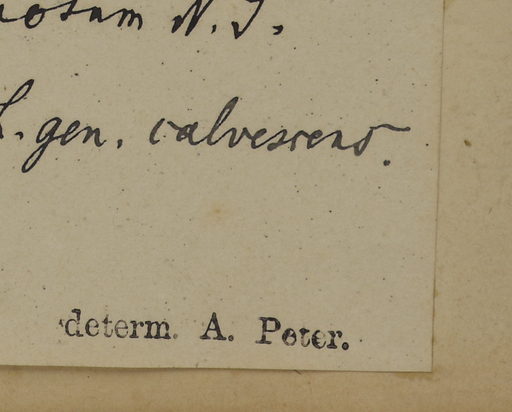 osum N. P.
gen. calvescens.
determ. A. Peter.